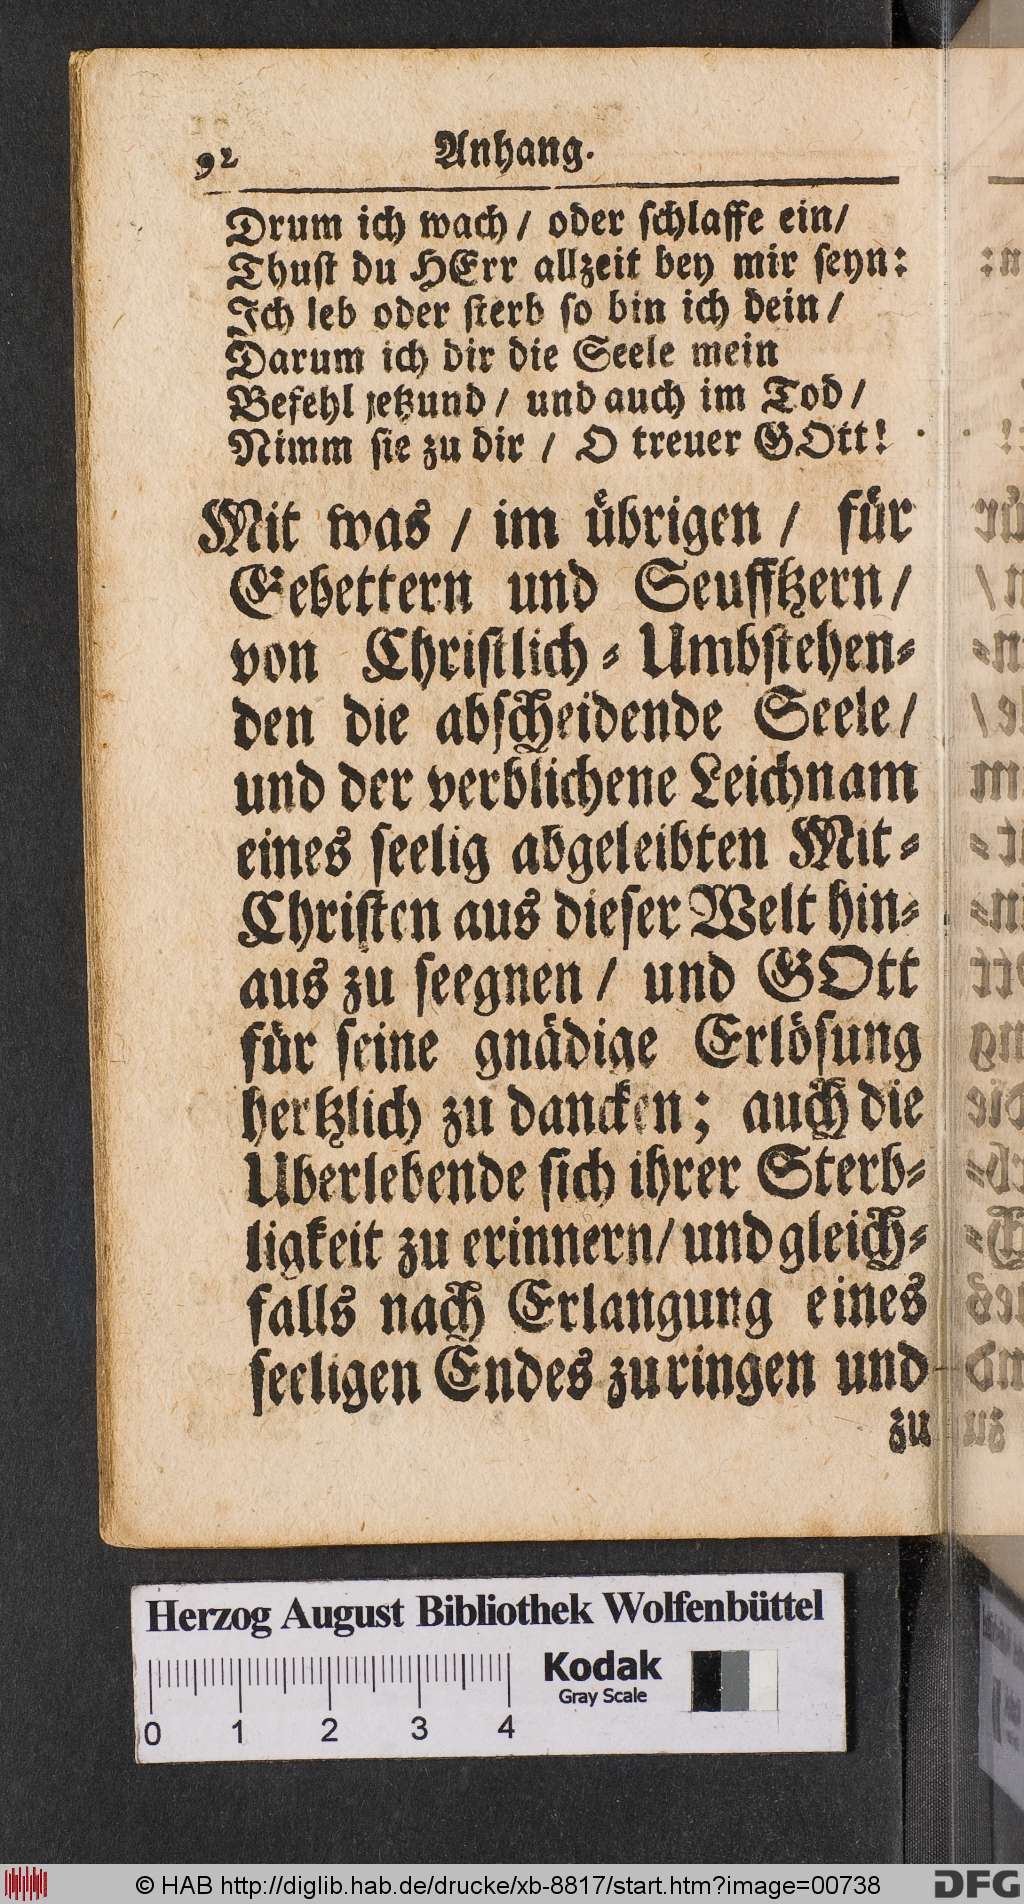 92 Anhang.
Drum ich wach / oder schlaffe ein/
Thust du HErr allzeit bey mir seyn:
Ich leb oder sterb so bin ich dein /
Darum ich dir die Seele mein
Befehl jetzund / und auch im Tod /
Nimm sie zu dir / O treuer GOtt!
Mit was / im uͤbrigen / fuͤr
Gebettern und Seufftzern /
von Christlich-Umbstehen-
den die abscheidende Seele /
und der verblichene Leichnam
eines seelig abgeleibten Mit-
Christen aus dieser Welt hin-
aus zu seegnen / und GOtt
fuͤr seine gnaͤdige Erloͤsung
hertzlich zu dancken; auch die
Uberlebende sich ihrer Sterb-
ligkeit zu erinnern / und gleich-
falls nach Erlangung eines
seeligen Endes zu ringen und
zu
Herzog August Bibliothek Wolfenbüttel
Kodak
Gray Scale
0 1 2 3 4
© HAB http://diglib.hab.de/drucke/xb-8817/start.htm?image=00738
DFG